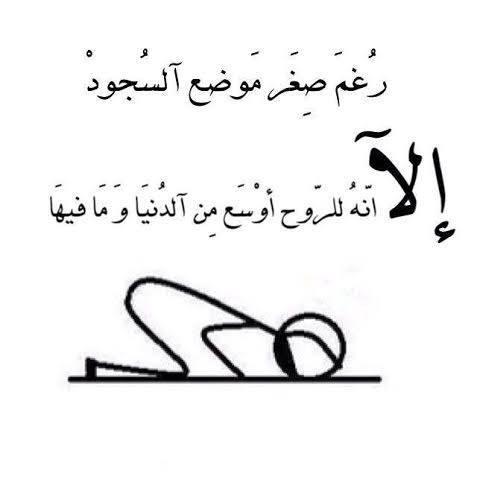 رُغمَ صِغَر مَوضع آلسُجودْ
إلآ
انّهُ للرّوح أوْسَع مِن آلدُنيَا وَ مَا فيهَا